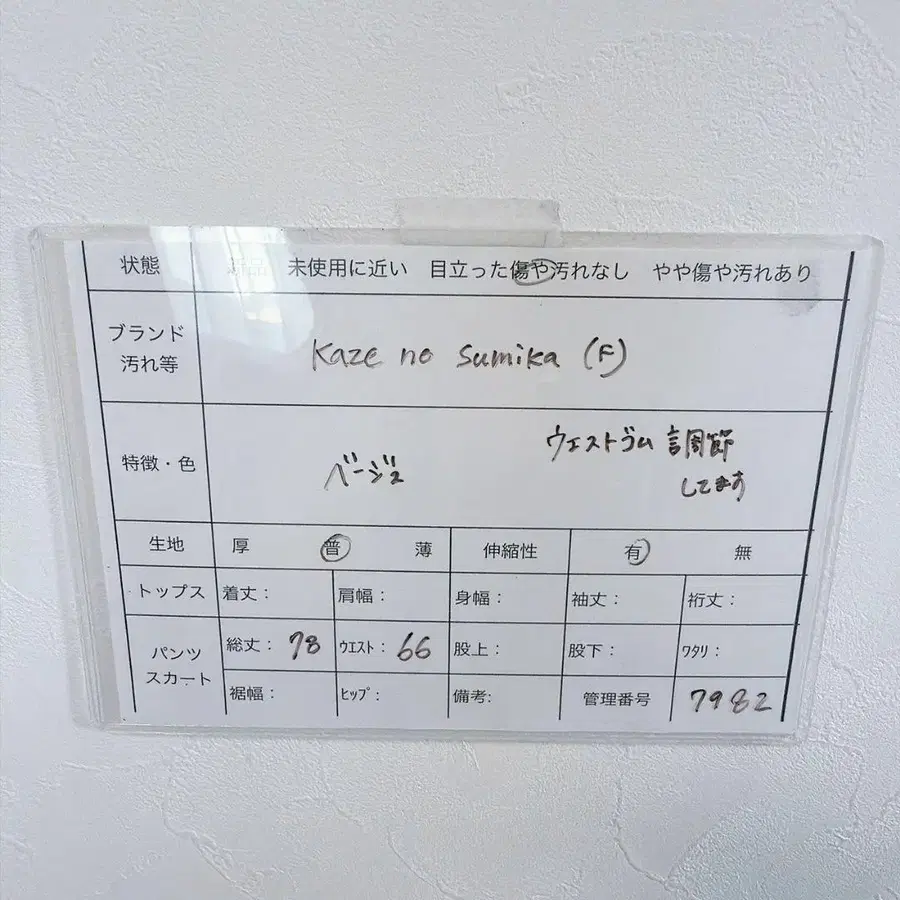 状態 新品 未使用に近い 目立った傷や汚れなし やや傷や汚れあり
ブランド
汚れ等
Kaze no sumika (F)
特徴・色
ベージュ
ウエストゴム調節
してます
生地 厚 普 薄 伸縮性 有 無
トップス 着丈: 肩幅: 身幅: 袖丈: 裄丈:
パンツ
スカート
総丈: 78 ウエスト: 66 股上: 股下: ワタリ:
裾幅: ヒップ: 備考: 管理番号 7982